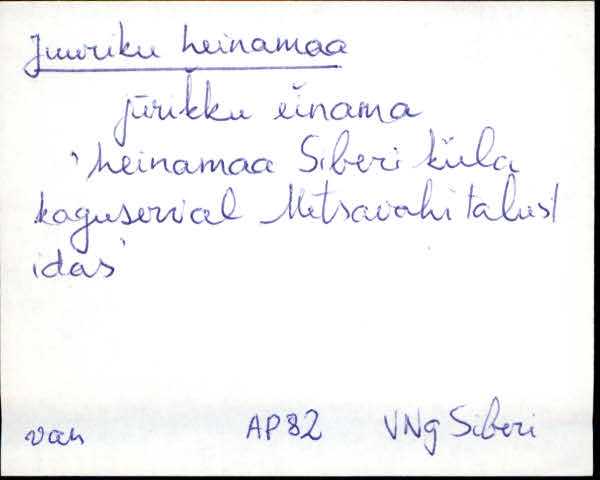 Juuriku heinamaa
jūrikku èinama
'heinamaa Siberi küla
kaguserval Metsavahi talust
idas'
van AP82 VNg Siberi